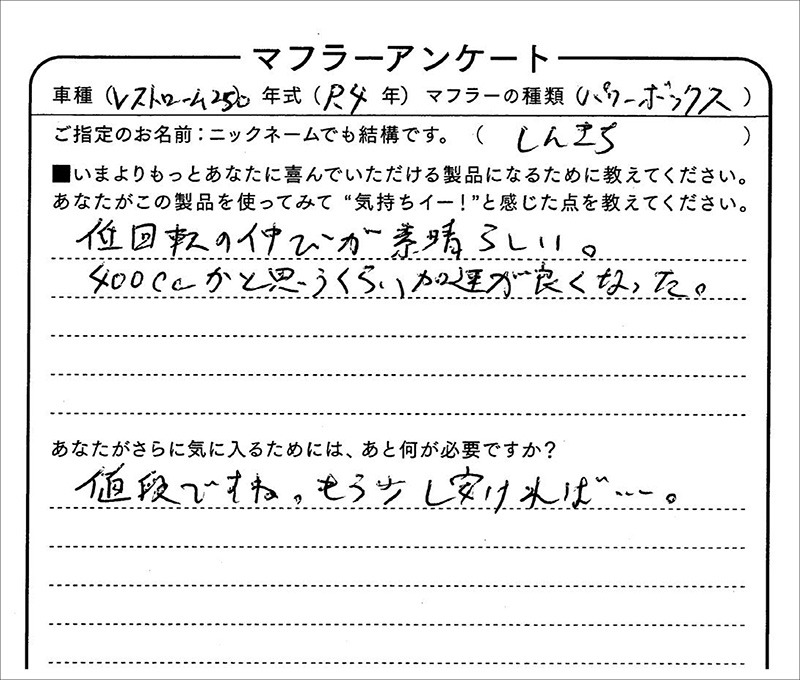 マフラーアンケート
車種（Vストローム250 年式（R4 年）マフラーの種類（パワーボックス）
ご指定のお名前：ニックネームでも結構です。（しんまち）
■いまよりもっとあなたに喜んでいただける製品になるために教えてください。
あなたがこの製品を使ってみて“気持ちイー！”と感じた点を教えてください。
低回転の伸びが素晴らしい。
400ccかと思うくらい加速が良くなった。
あなたがさらに気に入るためには、あと何が必要ですか？
値段ですね。もう少し安ければ…。